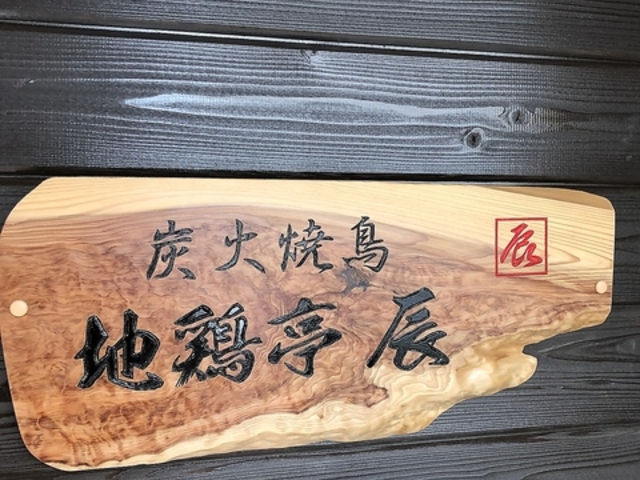 炭火焼鳥
辰
地鶏亭 辰